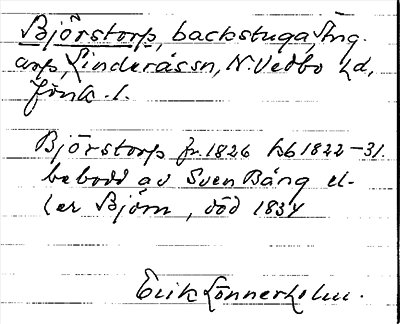 Björstorp, backstuga, Äng.
arp, Linderåssn, N. Vedbo hd,
Jönk. l.
Björstorp fr. 1826 hfl 1822-31.
bebodd av Sven Bång el-
ler Björn, död 1834
Erik Lönnerholm.